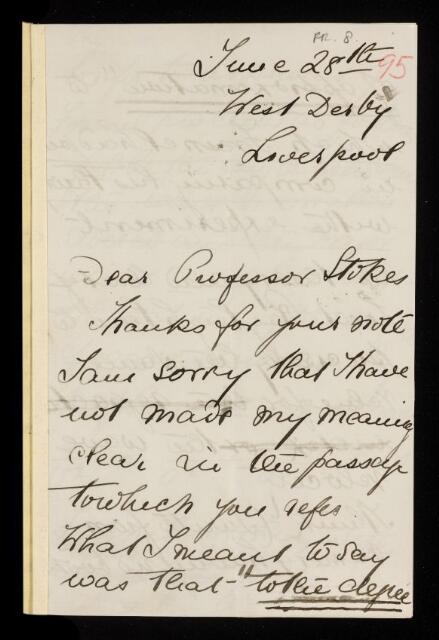 FR. 8.
June 28th
95
West Derby
Liverpool
Dear Professor Stokes
Thanks for your note
I am sorry that I have
not made my meaning
clear in the passage
to which you refer
What I meant to say
was that "to the degree